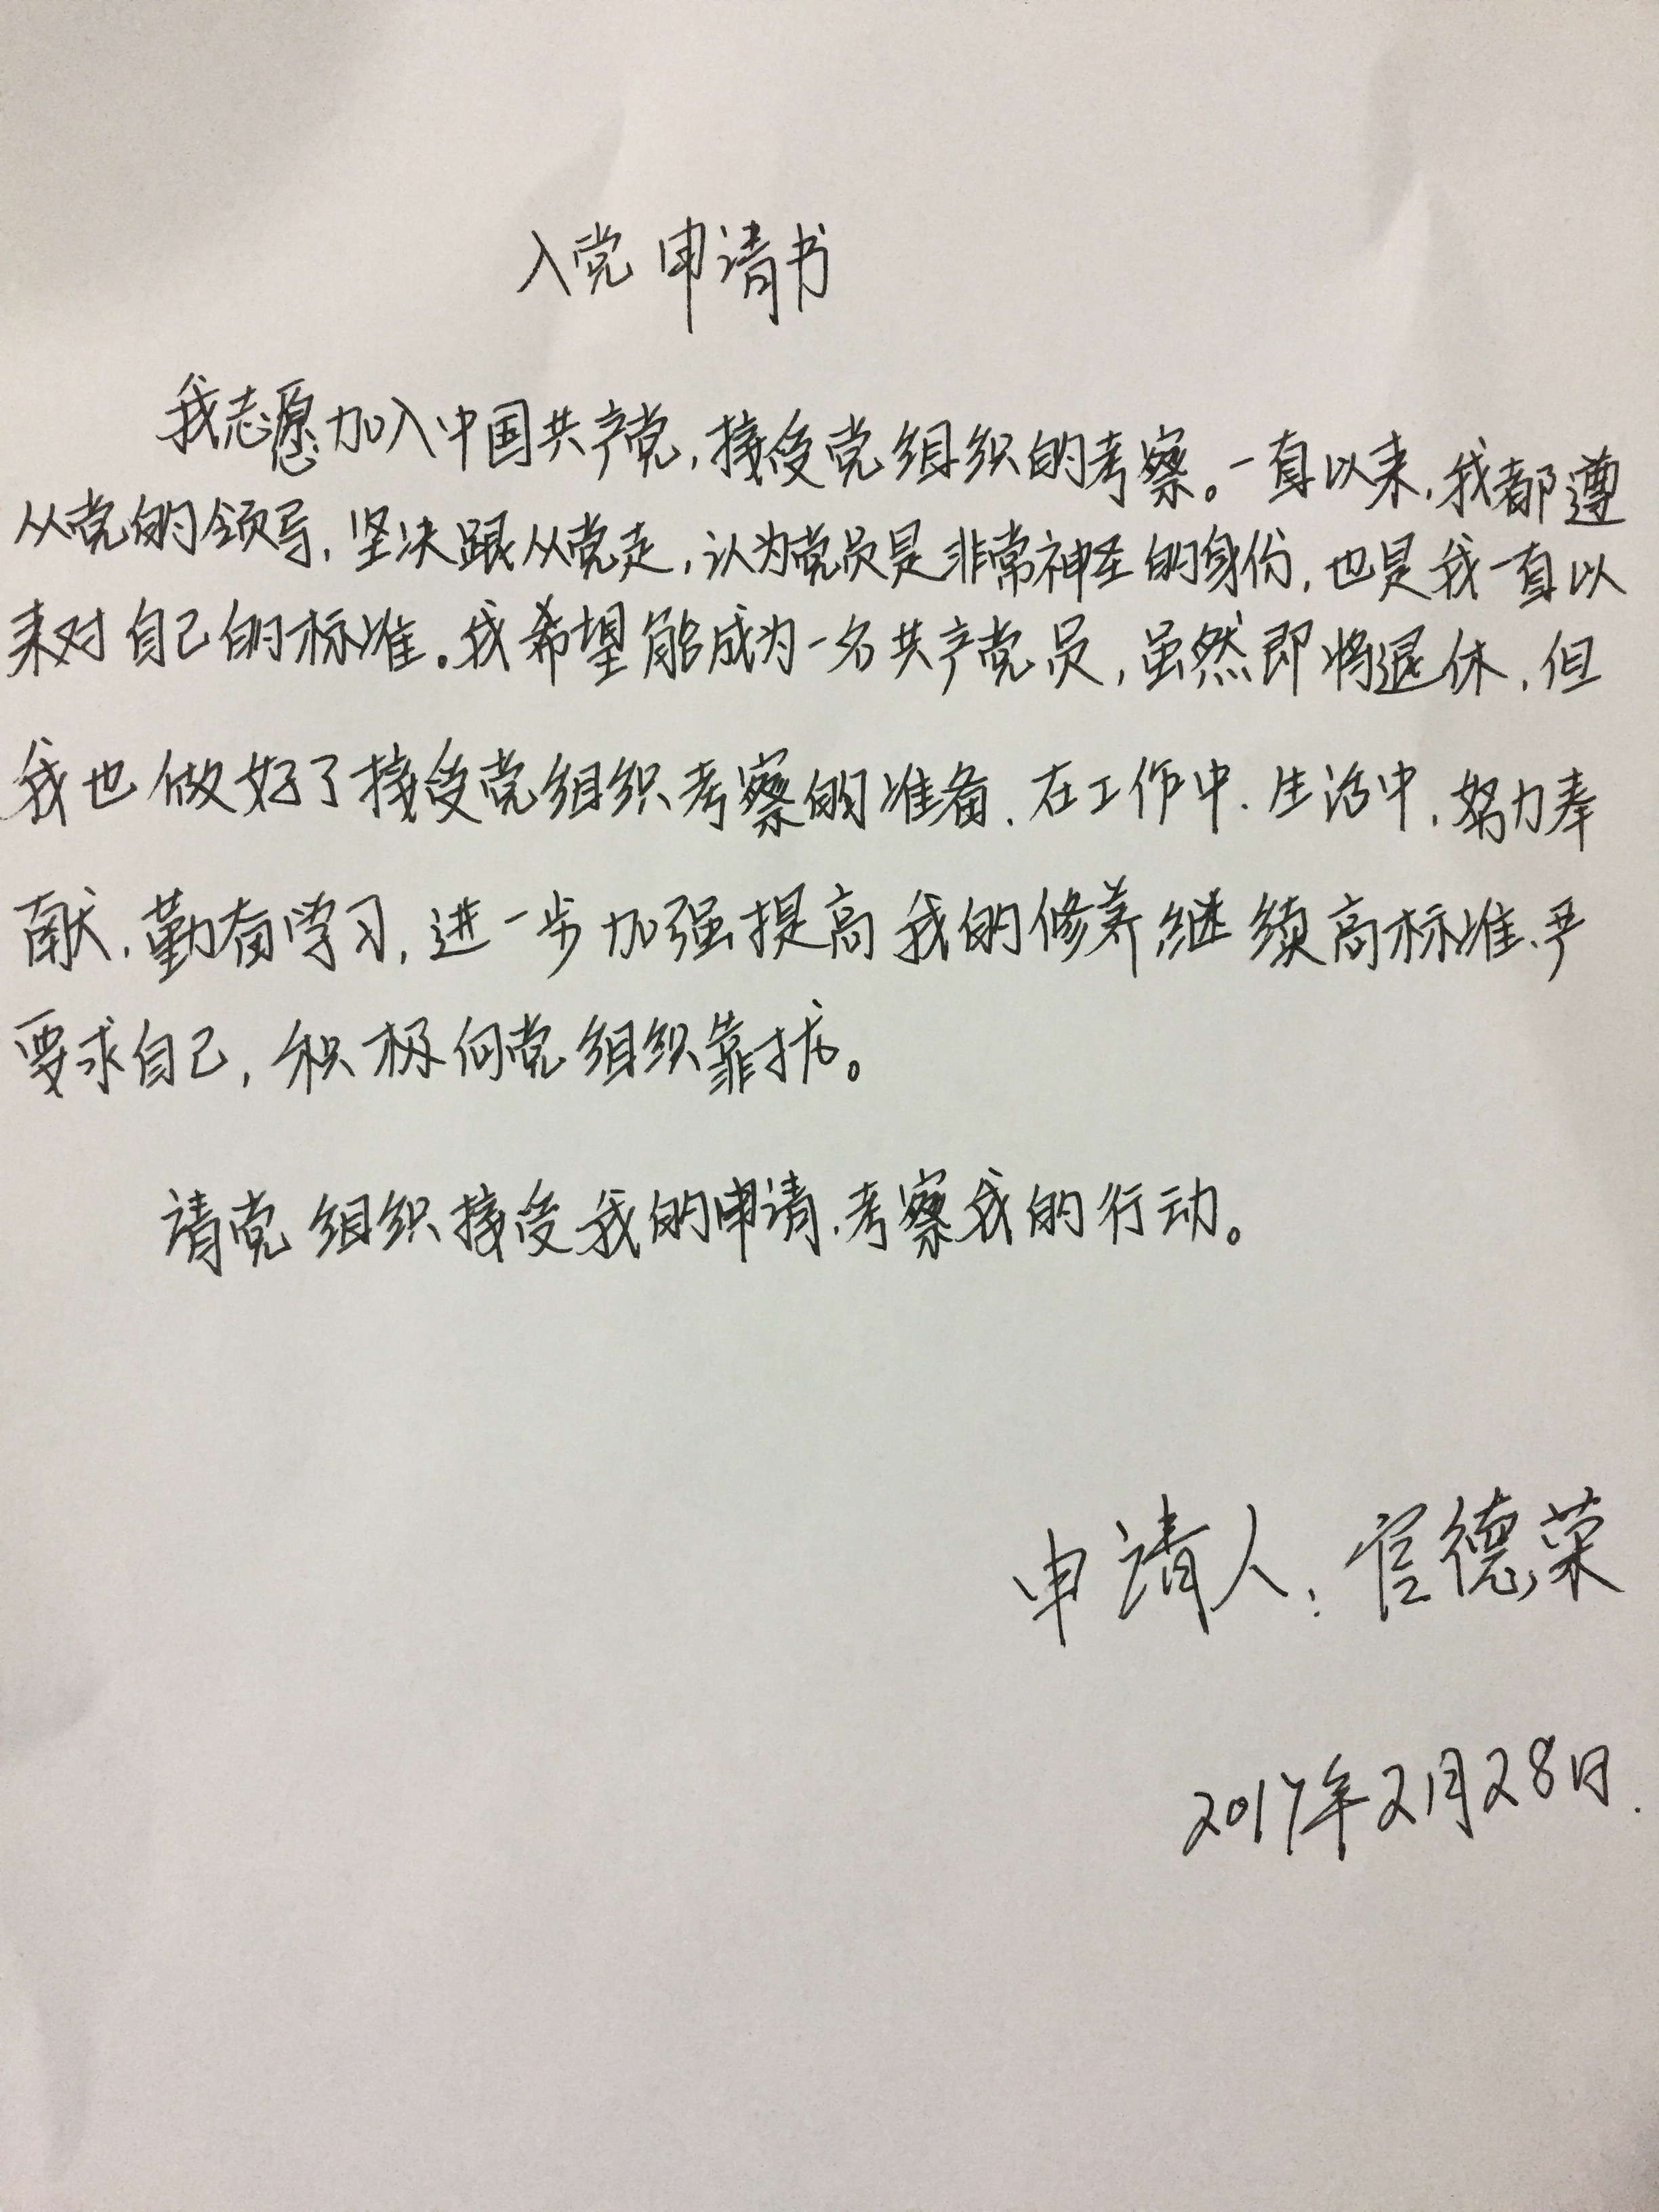 入党申请书
我志愿加入中国共产党,接受党组织的考察。一直以来,我都遵
从党的领导,坚决跟从党走,认为党员是非常神圣的身份,也是我一直以
来对自己的标准。我希望能成为一名共产党员,虽然即将退休,但
我也做好了接受党组织考察的准备,在工作中、生活中,努力奉
献,勤奋学习,进一步加强提高我的修养,继续高标准、严
要求自己,积极向党组织靠拢。
请党组织接受我的申请,考察我的行动。
申请人:官德荣
2017年2月28日.